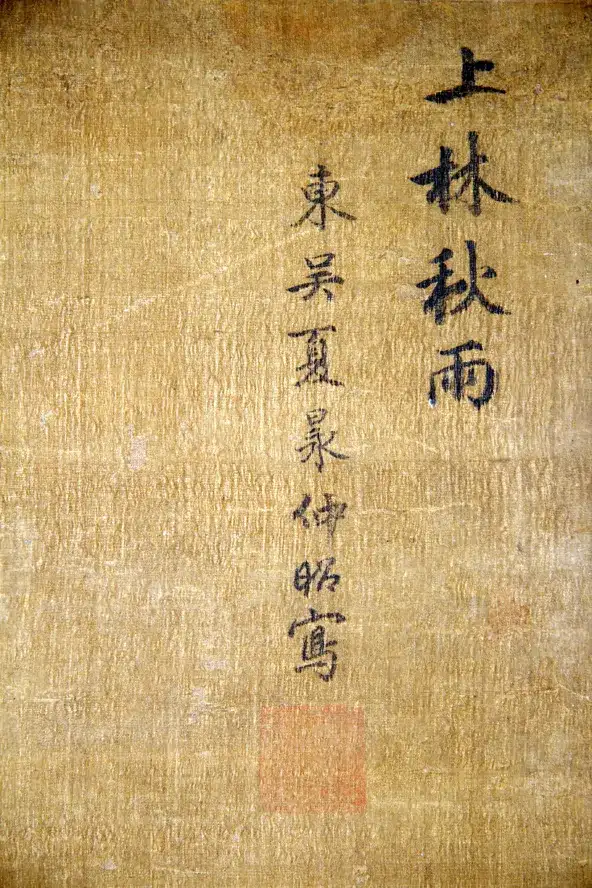 上林秋雨
東吴夏㫤仲昭寫